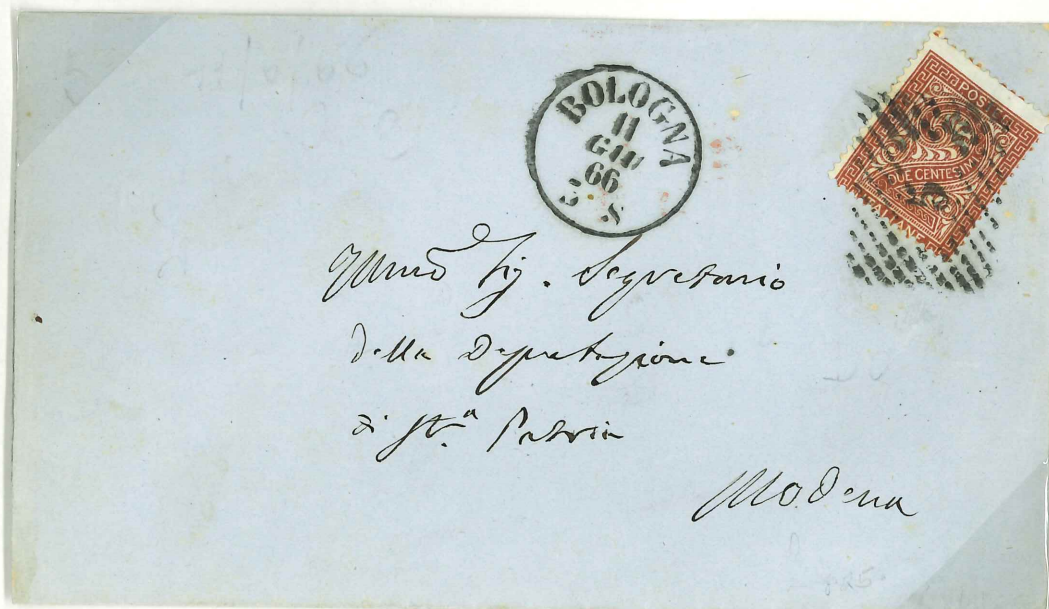 BOLOGNA
11
GIU
66
5 S
POST
DUE CENTESIMI
Illmo Sig. Segretario
della Deputazione
di St.ª Patria
Modena